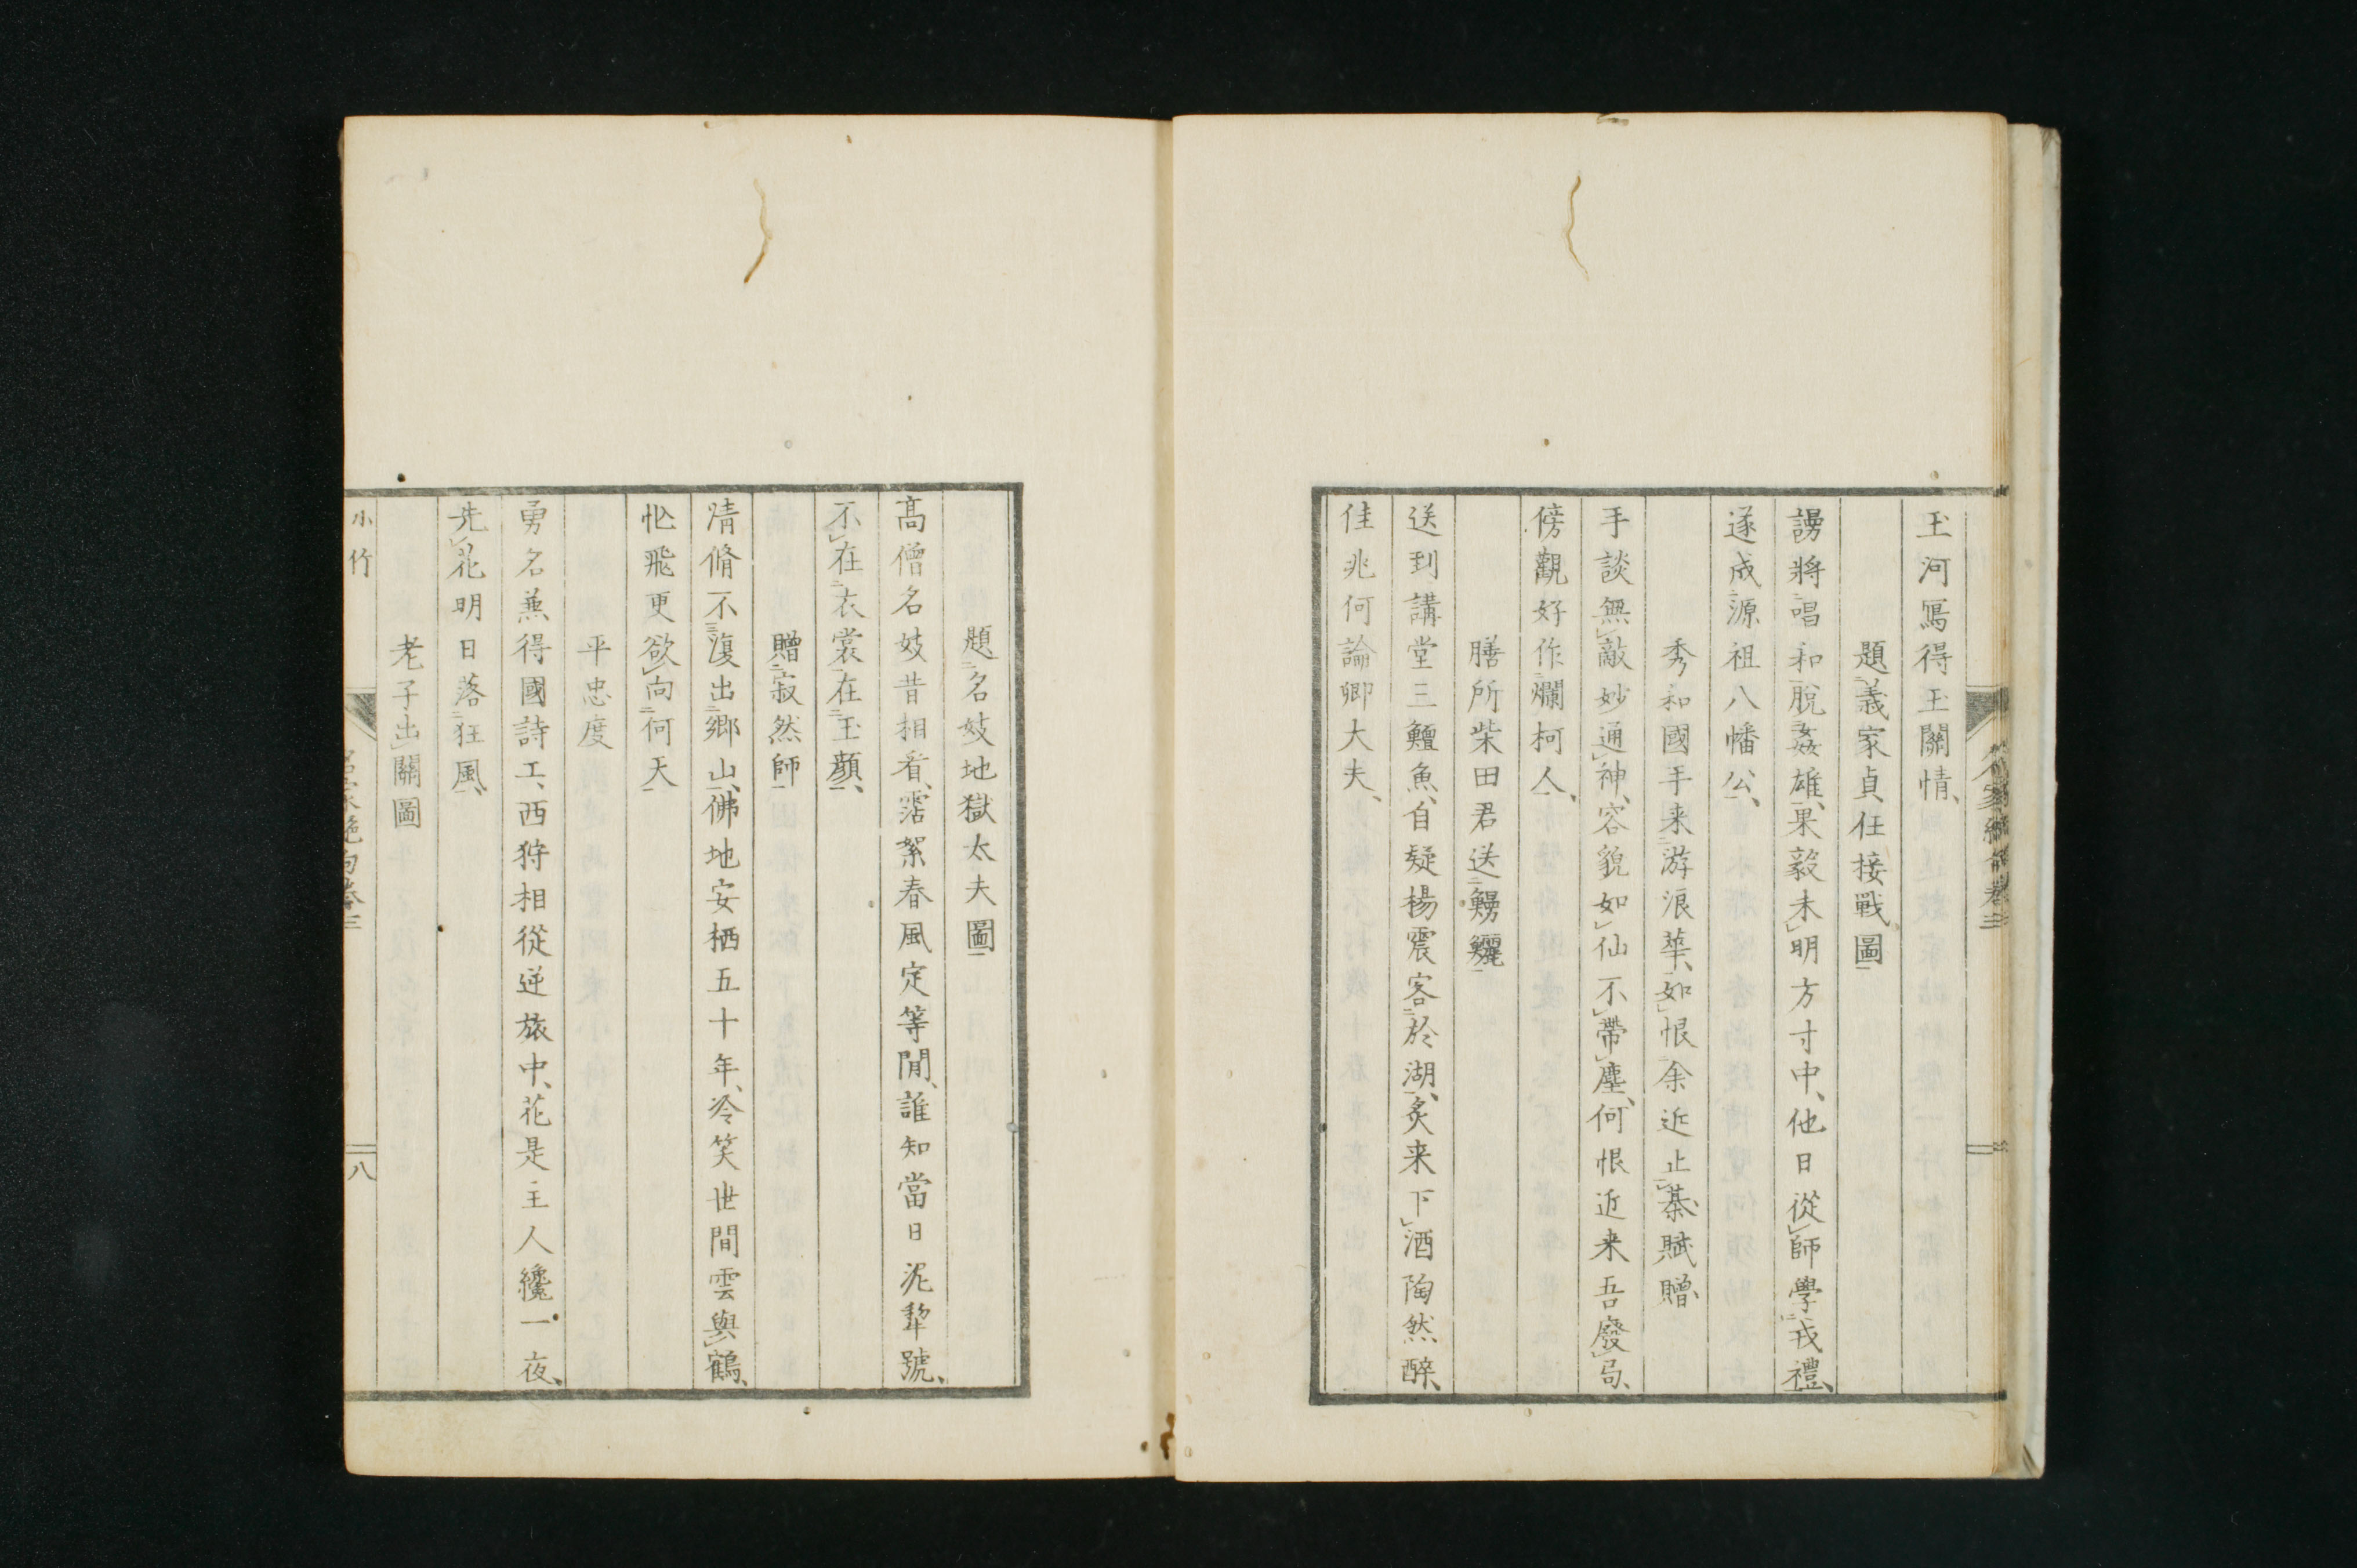 玉河寫得玉關情、
題義家貞任接戰圖
謾將唱和脫姦雄、果毅未明方寸中、他日從師學戎禮、
遂成源祖八幡公、
秀和國手来游浪華、如恨余近止棊賦贈
手談無敵妙通神、容貌如仙不帶塵、何恨近来吾廢局、
傍觀好作爛柯人、
膳所柴田君送鰻鱺
送到講堂三鱣魚、自疑楊震客於湖、炙来下酒陶然醉、
佳兆何論卿大夫、
題名妓地獄太夫圖
高僧名妓昔相看、霑絮春風定等閒、誰知當日泥犂號、
不在衣裳在玉顔、
贈寂然師
清脩不復出鄉山、佛地安栖五十年、冷笑世間雲與鶴、
忙飛更欲向何天
平忠度
勇名兼得國詩工、西狩相從逆旅中、花是主人纔一夜、
先花明日落狂風、
老子出關圖
小竹
名家絶句卷三
八